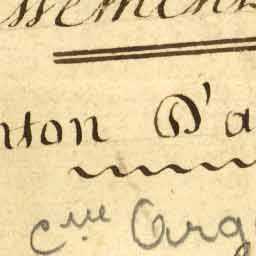 ssements
nton D'a
cne Orga